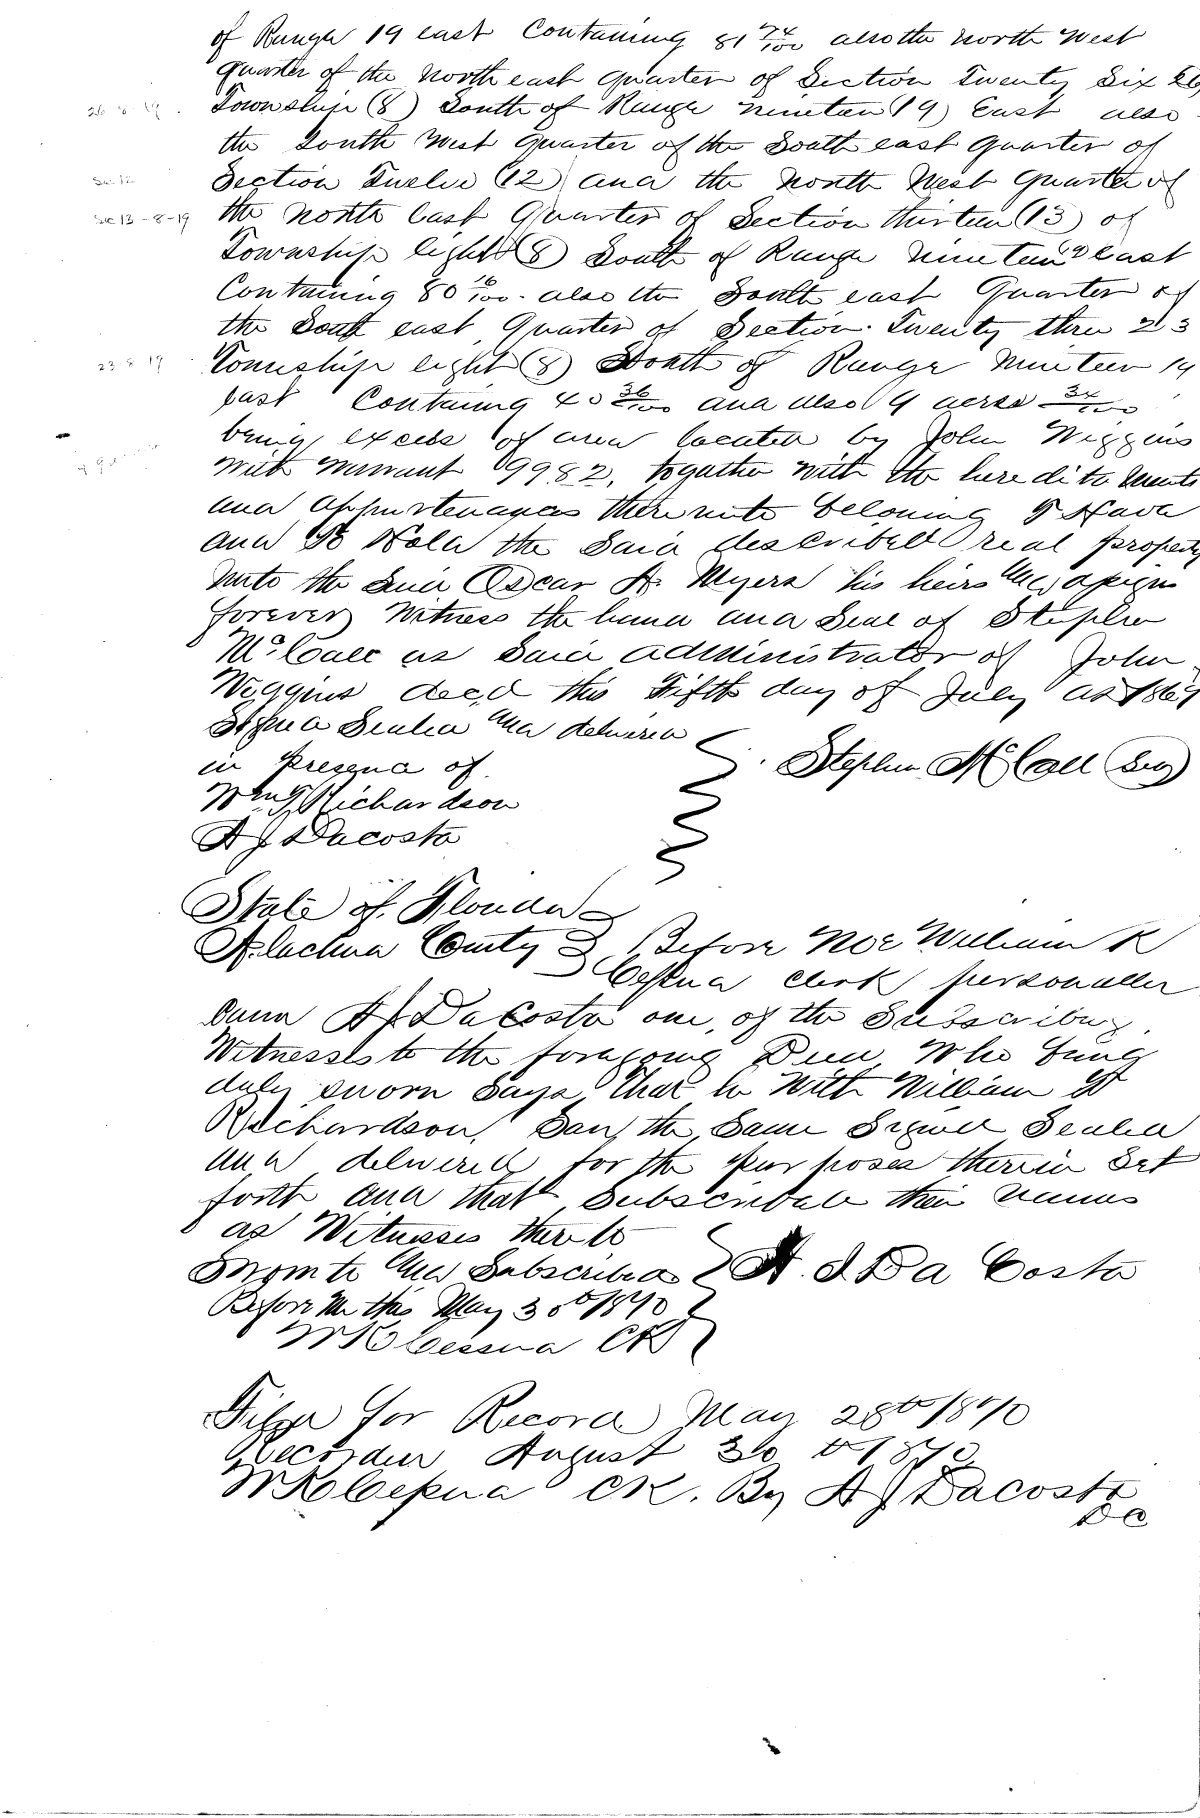 of Range 19 east Containing 81 74/100 also the North West
quarter of the North east quarter of Section Twenty Six 26
26-8-19 Township (8) South of Range nineteen (19) East also
the South West quarter of the South east quarter of
Sec 12 Section Twelve (12) and the North West quarter of
Sec 13-8-19 the North East Quarter of Section thirteen (13) of
Township Eight (8) South of Range nineteen 19 East
Containing 80 16/100 also the South east Quarter of
the South east Quarter of Section Twenty three 23
23-8-19 Township eight (8) South of Range Nineteen 19
East Containg 40 36/100 and also 9 acres 34/100
being excess of area located by John Wiggins
with warrant 9982, together with the hereditaments
and appurtenances thereunto beloning To Have
and To Hold the Said described real property
unto the Said Oscar A. Myers his heirs and assigns
forever Witness the hand and Seal of Stephen
McCall as Said administrator of John
Wiggins decd this Fifth day of July AD 1869
Signed Sealed and delivered
in Presence of Stephen McCall (Seal)
Wm Richardson
A J Dacosta
State of Florida
Alachua County Before Me William K
Cessna clerk personally
Came A J DaCosta one of the Subscribing
Witnesses to the foregoing Deed Who being
duly sworn Says that he With William
Richardson Saw the Same Signed Sealed
and delivered for the purposes therein Set
forth and that Subscribed their names
as Witnesses thereto
Sworn to and Subscribed A. J Da Costa
Before Me this May 30th 1870
W K Cessna Clk
Filed for Record May 28th 1870
Recorded August 30th 1870
W K Cessna Clk. By A J Dacosta
DC